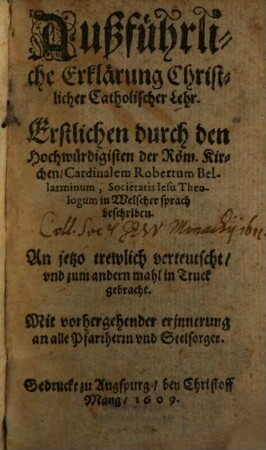 Außführli⸗
che Erklärung Christ⸗
licher Catholischer Lehr.
Erstlichen durch den
Hochwürdigisten der Röm. Kir⸗
chen/ Cardinalem Robertum Bel⸗
larminum, Societatis Iesu Theo⸗
logum in Welscher sprach
beschriben.
Coll. Soc
An jetzo trewlich verteutscht/
vnd zum andern mahl in Truck
gebracht.
Mit vorhergehender erjnnerung
an alle Pfarrherrn vnd Seelsorger.
Gedruckt zu Augspurg/ bey Christoff
Mang/ 1609.